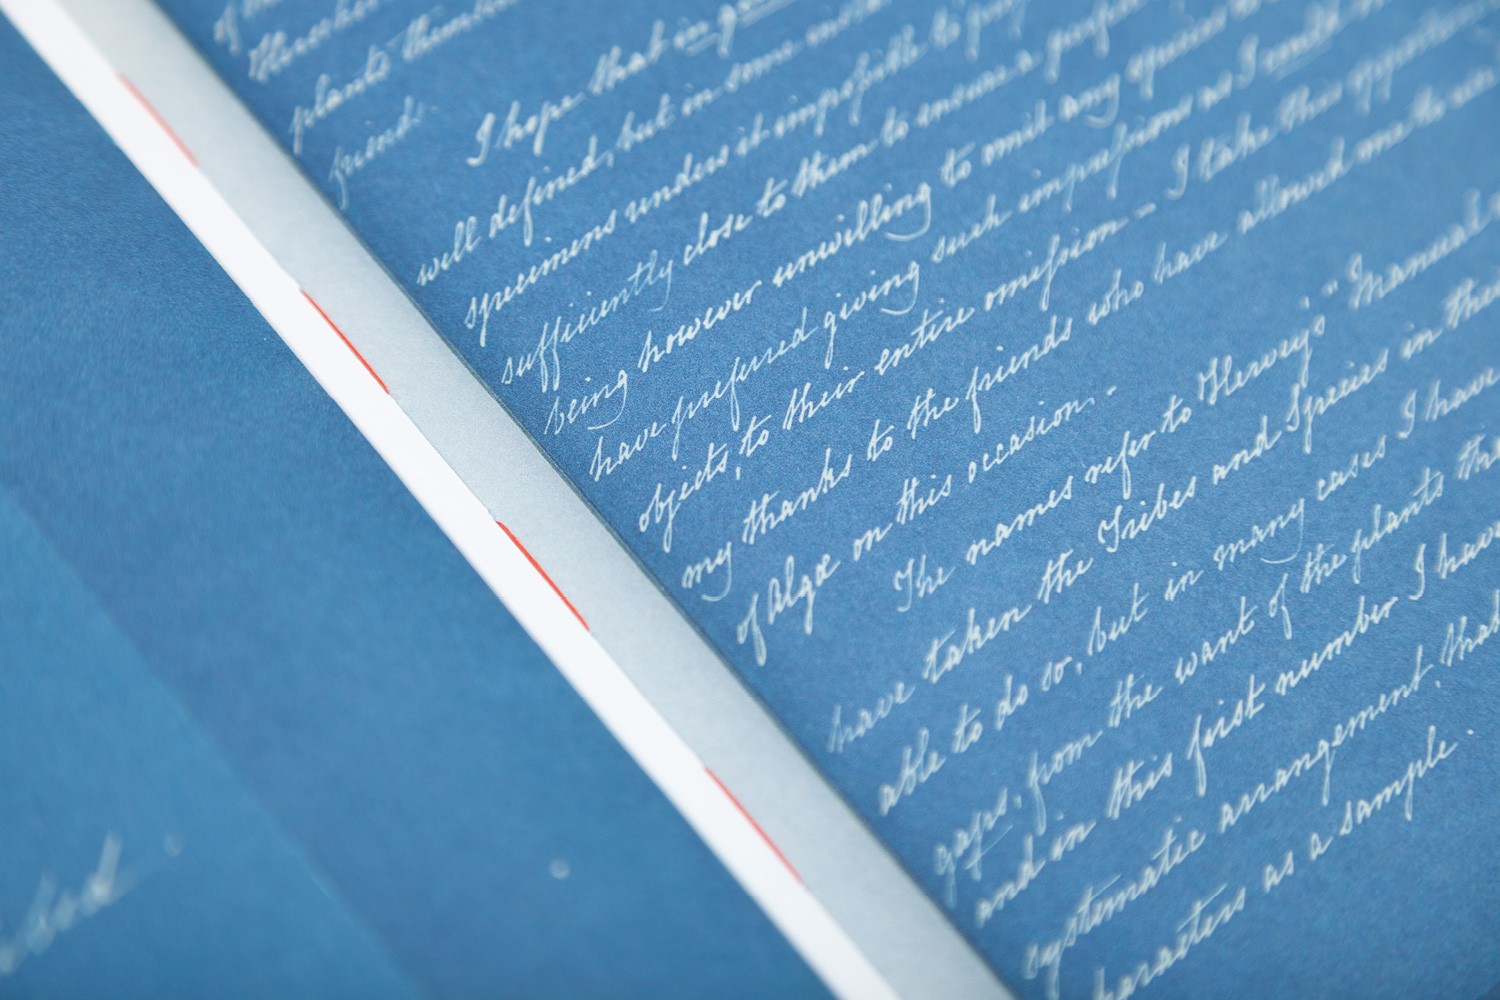 of the
plants them
friend.
I hope that in g
well defined, but in some
specimens renders it impoſsible to
sufficiently close to them to ensure a perfect
being however unwilling to omit any species
have preferred giving such impreſsions as I could
objects, to their entire omiſsion — I take this opportun
my thanks to the friends who have allowed me to
of Algæ on this occasion. —
The names refer to "Harvey's "Manual
have taken the Tribes and Species in their
able to do so, but in many cases I have
gaps, from the want of the plants the
and in this first number I have
systematic arrangement, that
characters as a sample.